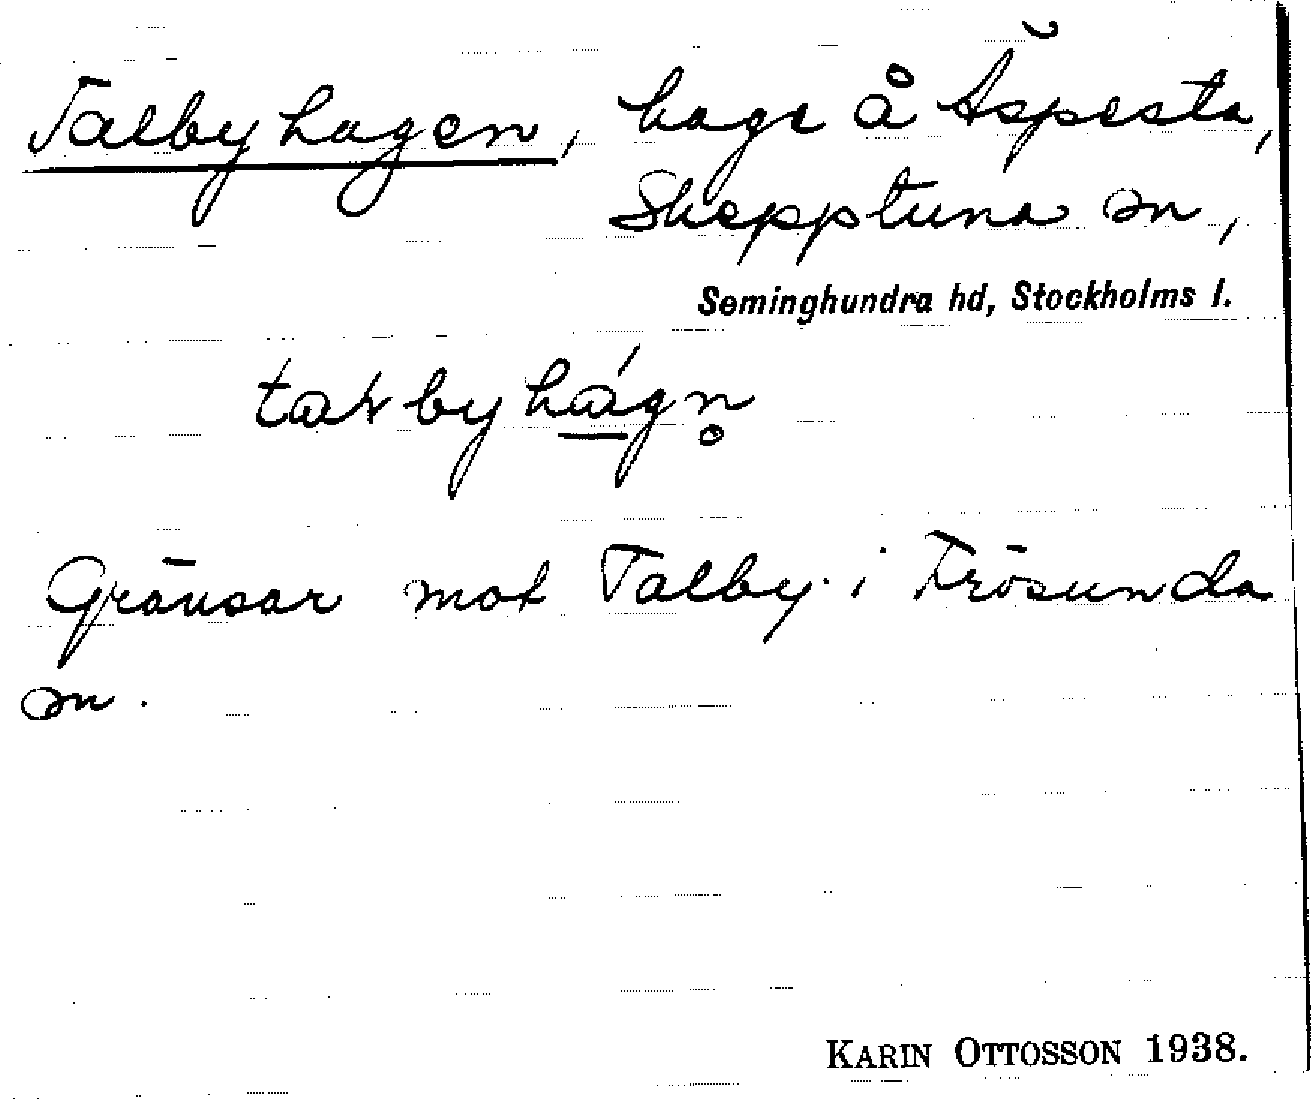 Talbyhagen, hage å Åspesta,
Skepptuna sn,
Seminghundra hd, Stockholms l.
Gränsar mot Talby i Frösunda
sn.
KARIN OTTOSSON 1938.